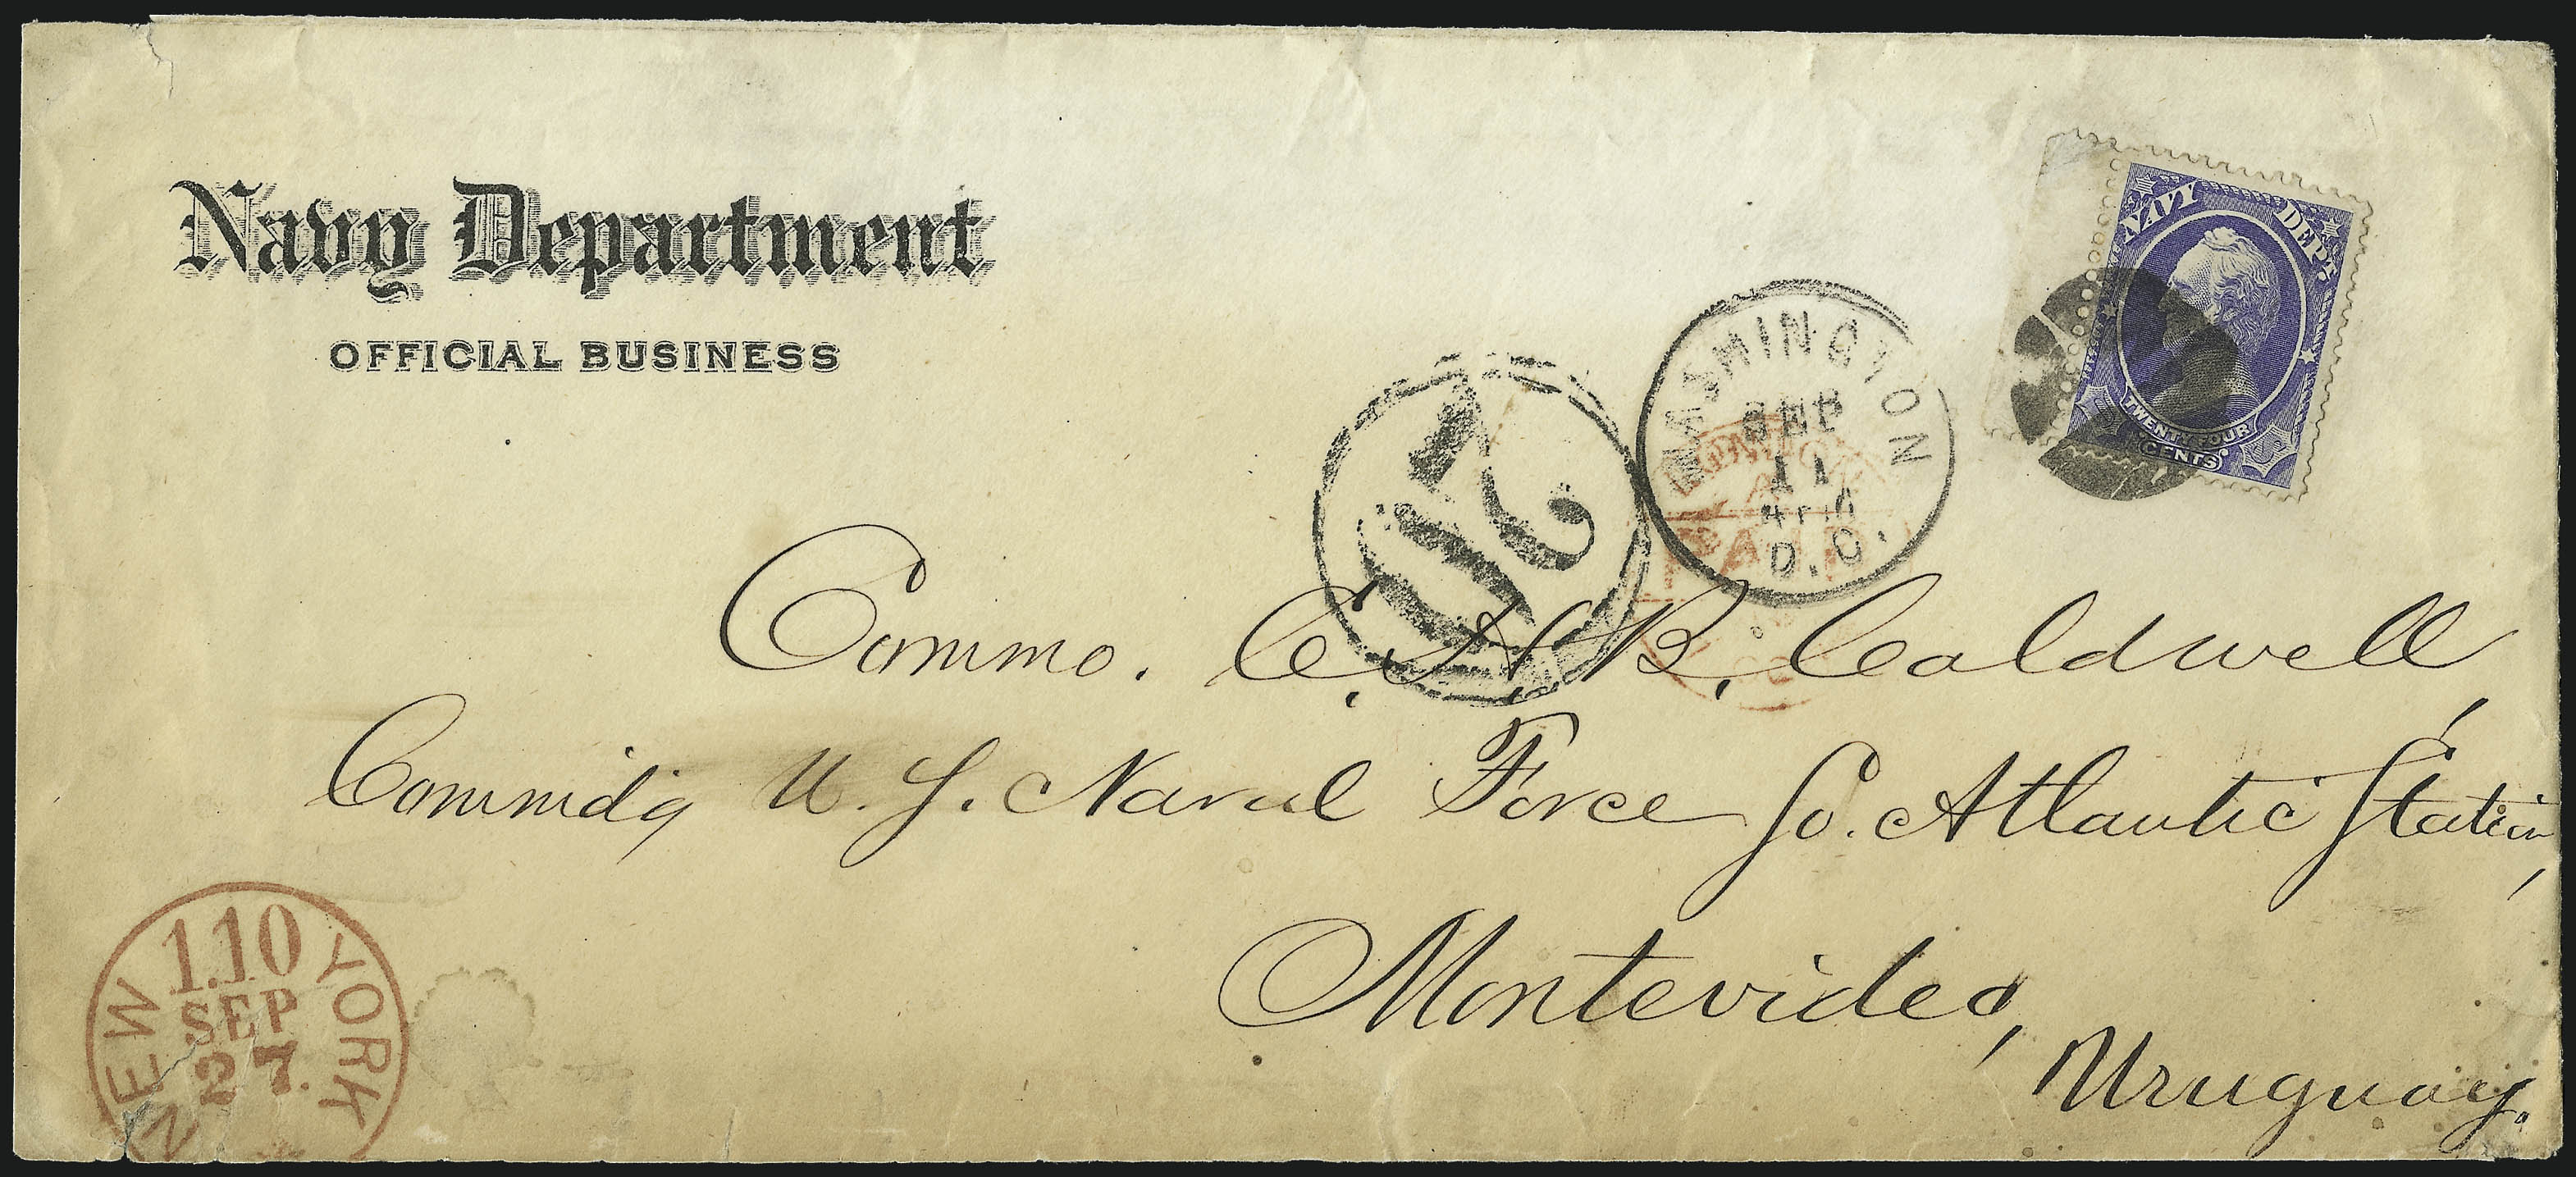 Navy Department
OFFICIAL BUSINESS
NAVY DEPT.
TWENTY FOUR
CENTS
WASHINGTON
SEP
11
D.C.
LONDON
PAID
20
Commo. C. H. B. Caldwell,
Commdg U. S. Naval Force So. Atlantic Station,
Montevideo,
Uruguay.
NEW YORK
1.10
SEP
27.